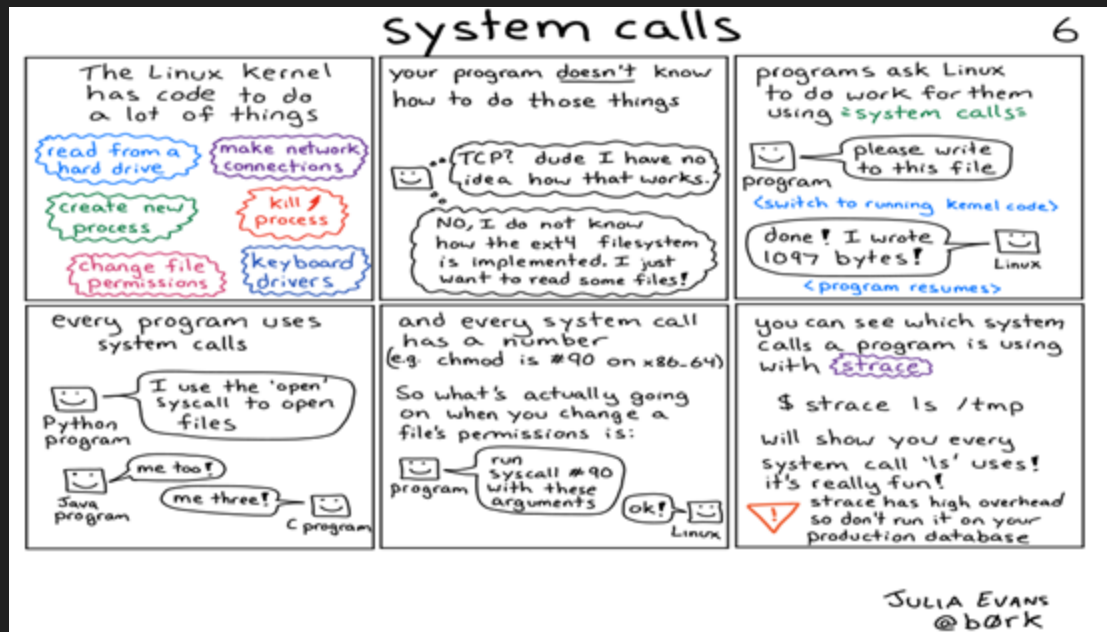 system calls
6
The Linux kernel
has code to do
a lot of things
read from a
hard drive
make network
connections
create new
process
kill
process
change file
permissions
keyboard
drivers
your program doesn't know
how to do those things
TCP? dude I have no
idea how that works.
NO, I do not know
how the ext4 filesystem
is implemented. I just
want to read some files!
programs ask Linux
to do work for them
using =system calls=
please write
to this file
program
<switch to running kernel code>
done! I wrote
1097 bytes!
Linux
<program resumes>
every program uses
system calls
I use the 'open'
syscall to open
files
Python
program
me too!
Java
program
me three!
C program
and every system call
has a number
(e.g. chmod is #90 on x86-64)
So what's actually going
on when you change a
file's permissions is:
run
syscall #90
with these
arguments
program
ok!
Linux
you can see which system
calls a program is using
with strace
$ strace ls /tmp
will show you every
system call 'ls' uses!
it's really fun!
! strace has high overhead
so don't run it on your
production database
JULIA EVANS
@børk